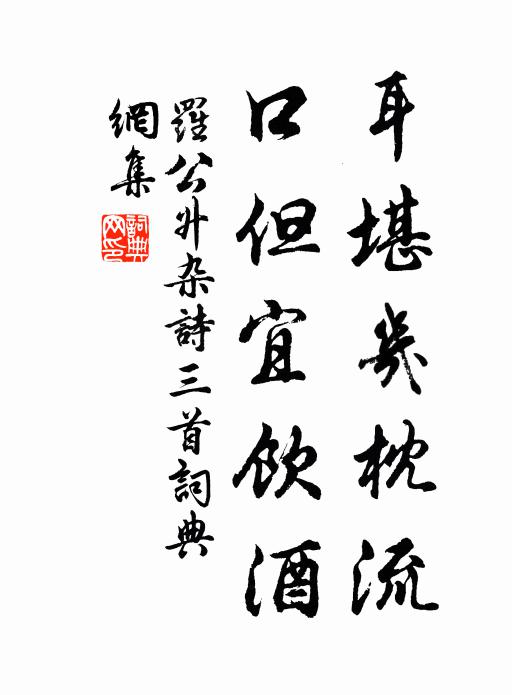 耳堪幾枕流
口但宜飲酒
羅公升杂詩三首詞典
網集
詞典网印